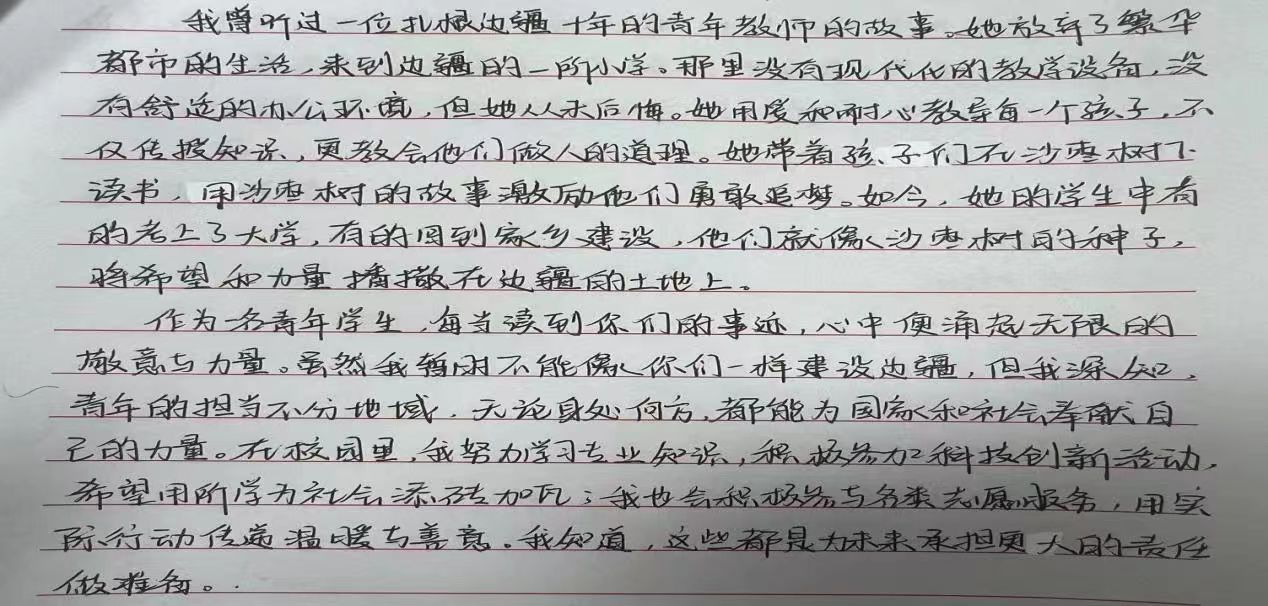 我曾听过一位扎根边疆十年的青年教师的故事。她放弃了繁华
都市的生活，来到边疆的一所小学。那里没有现代化的教学设备，没
有舒适的办公环境，但她从未后悔。她用爱和耐心教导每一个孩子，不
仅传授知识，更教会他们做人的道理。她带着孩子们在沙枣树下
读书，用沙枣树的故事激励他们勇敢追梦。如今，她的学生中有
的考上了大学，有的回到家乡建设，他们就像沙枣树的种子，
将希望和力量播撒在边疆的土地上。
作为名青年学生，每当读到你们的事迹，心中便涌起无限的
敬意与力量。虽然我暂时不能像你们一样建设边疆，但我深知，
青年的担当不分地域，无论身处何方，都能为国家和社会奉献自
己的力量。在校园里，我努力学习专业知识，积极参加科技创新活动，
希望用所学为社会添砖加瓦；我也会积极参与各类志愿服务，用实
际行动传递温暖与善意。我知道，这些都是为未来承担更大的责任
做准备。